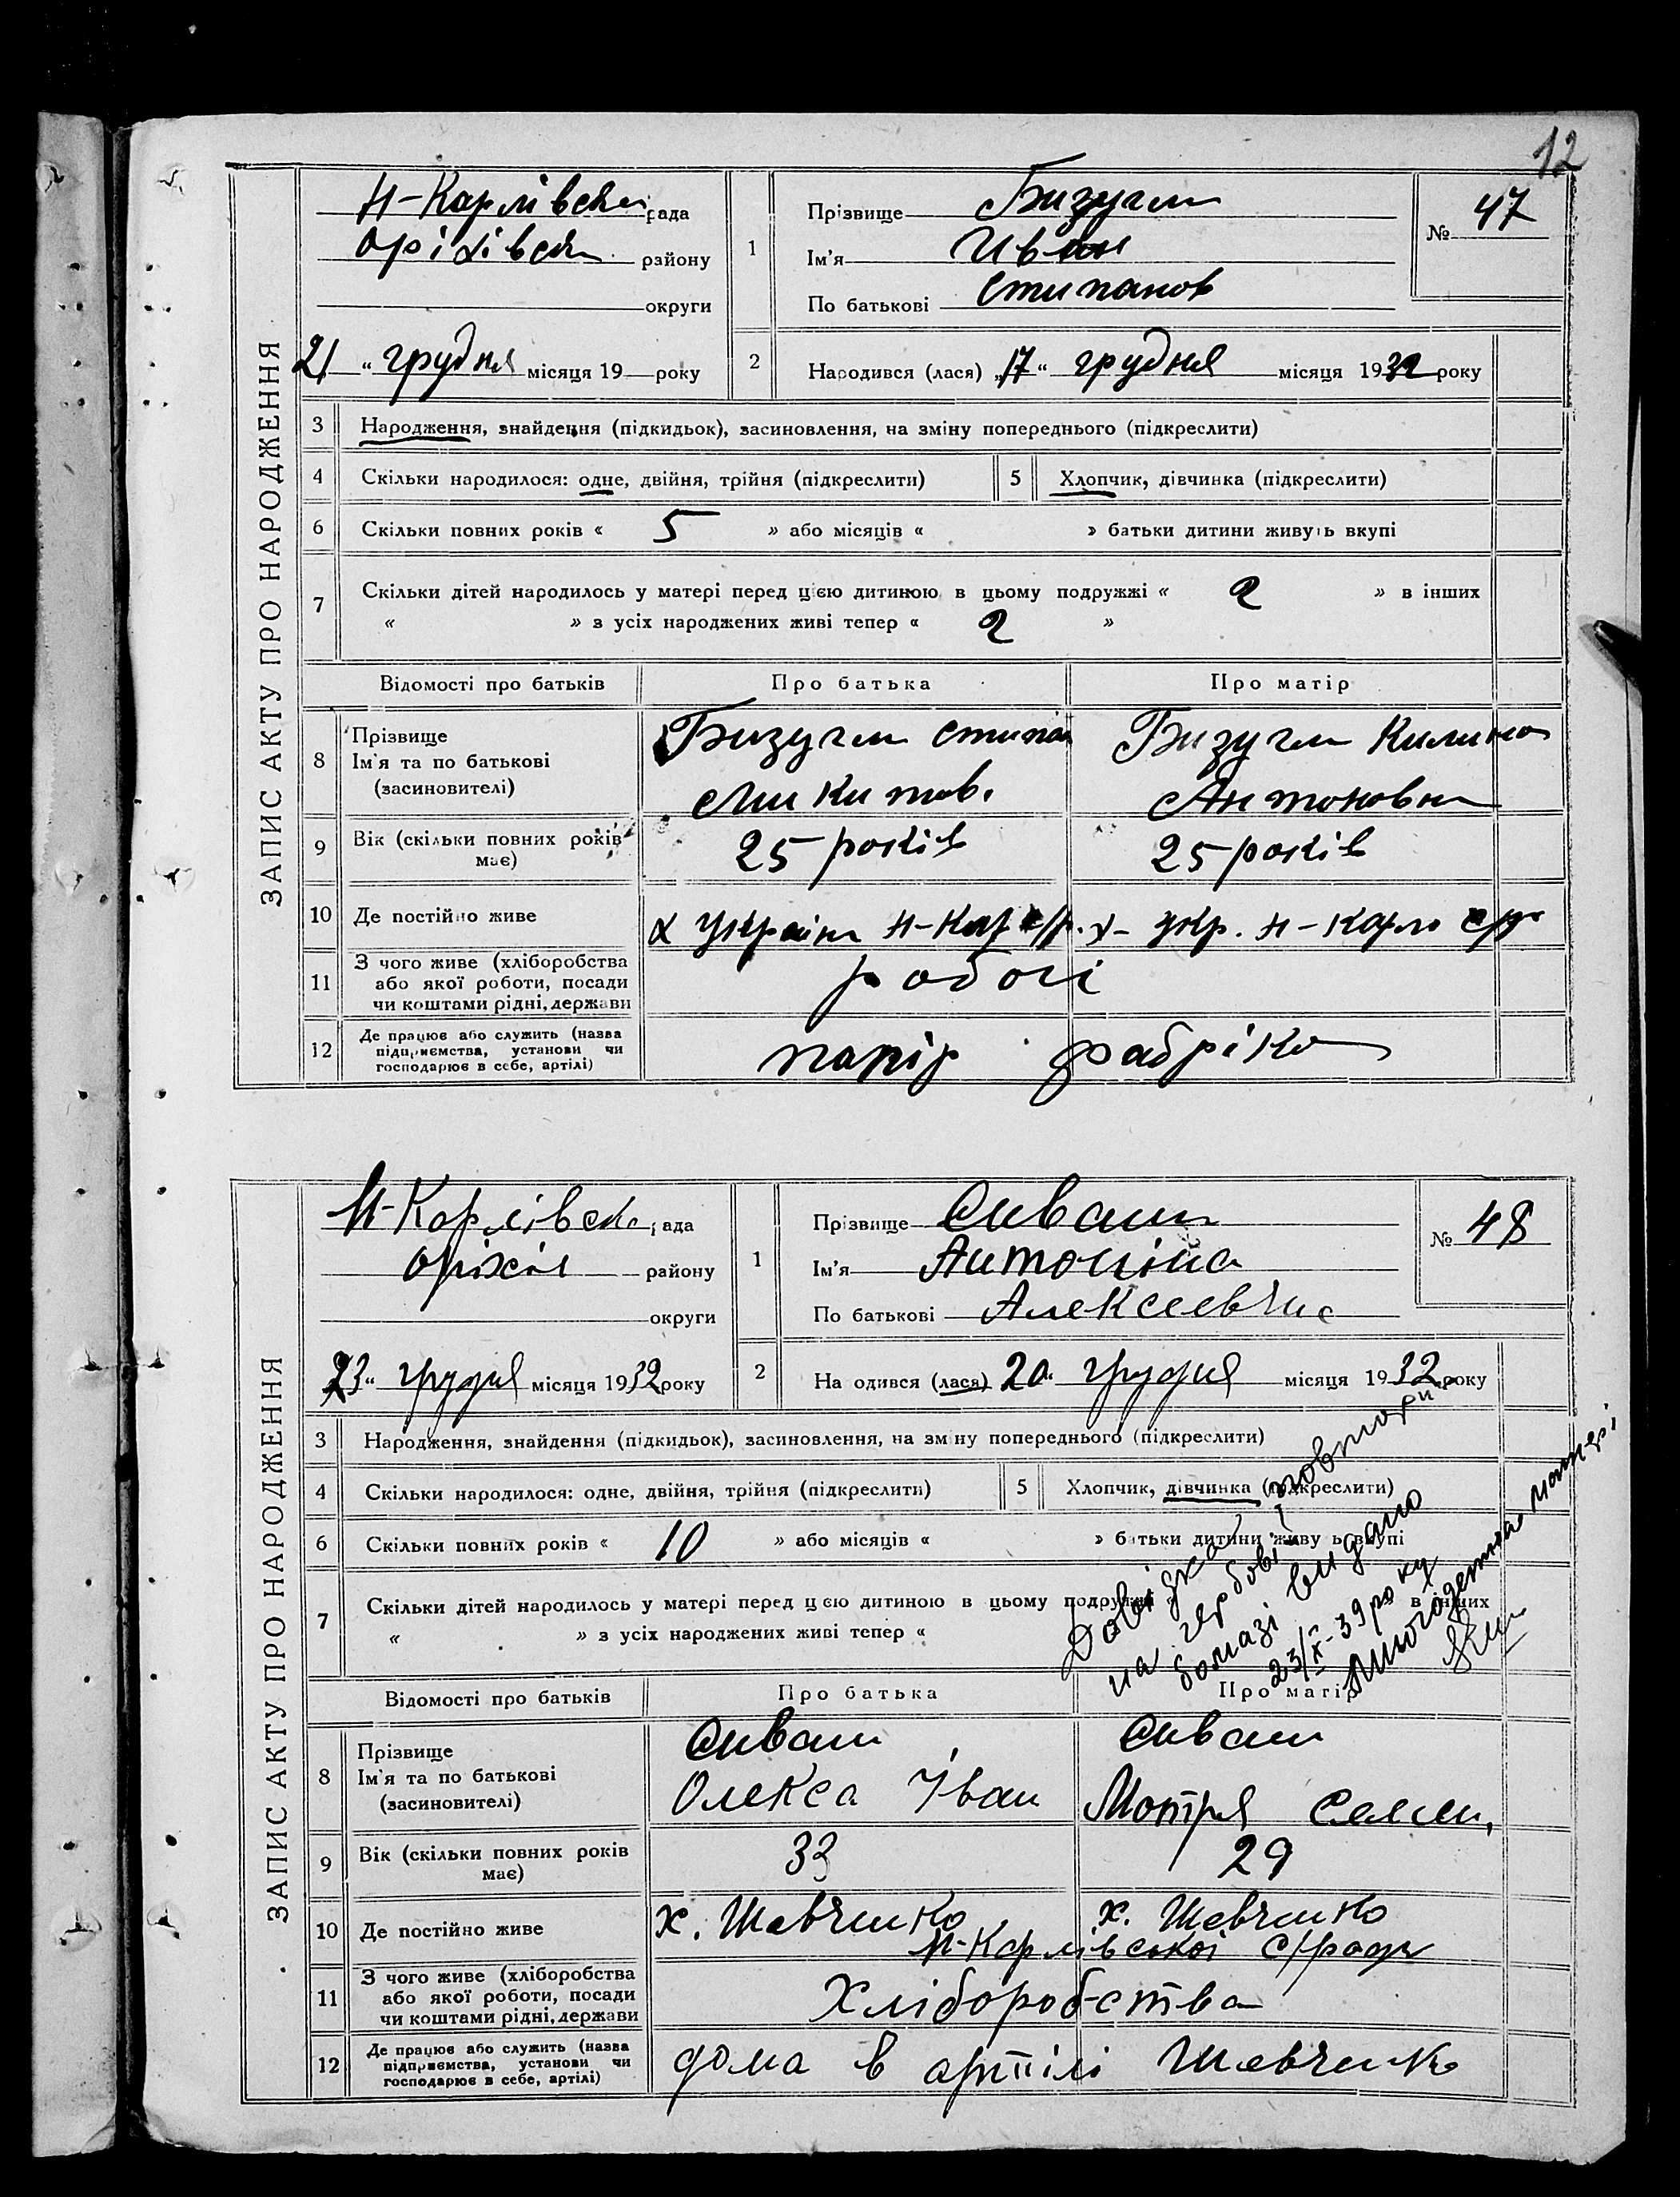 12
ЗАПИС АКТУ ПРО НАРОДЖЕННЯ
Н-Карлівська рада
Оріхівськ району
округи
21 „ грудня місяця 19 року
1
Прізвище Бизугли
Ім'я Иван
По батькові Стипанов
№ 47
2 Народився (лася) „17“ грудня місяця 1932 року
3 Народження, знайдення (підкидьок), засиновлення, на зміну попереднього (підкреслити)
4 Скільки народилося: одне, двійня, трійня (підкреслити) 5 Хлопчик, дівчинка (підкреслити)
6 Скільки повних років « 5 » або місяців « » батьки дитини живуть вкупі
7 Скільки дітей народилось у матері перед цією дитиною в цьому подружжі « 2 » в інших
« » з усіх народжених живі тепер « 2 »
Відомості про батьків Про батька Про матір
8 Прізвище
Ім'я та по батькові
(засиновителі)
Бизугли Стипан
Микитов.
Бизугли Килина
Антоновна
9 Вік (скільки повних років
має)
25 років 25 років
10 Де постійно живе
х Україна Н-Кар с/р. х- укр. Н-Карло
11 З чого живе (хліборобства
або якої роботи, посади
чи коштами рідні, держави
робочі
12 Де працює або служить (назва
підприємства, установи чи
господарює в себе, артілі)
папір фабріка
ЗАПИС АКТУ ПРО НАРОДЖЕННЯ
Н-Карлівська рада
Оріхів району
округи
23 „ грудня місяця 1932 року
1
Прізвище Сиваш
Ім'я Антоніна
По батькові Алексеевна
№ 48
2 Народився (лася) 20 грудня місяця 1932 року
3 Народження, знайдення (підкидьок), засиновлення, на зміну попереднього (підкреслити)
4 Скільки народилося: одне, двійня, трійня (підкреслити) 5 Хлопчик, дівчинка (підкреслити)
6 Скільки повних років « 10 » або місяців « » батьки дитини живуть вкупі
7 Скільки дітей народилось у матері перед цією дитиною в цьому подружжі « » в інших
« » з усіх народжених живі тепер «
Довідка повторна
на гербові
бомазі видано
23/X-39 року
многодетная матері
Відомості про батьків Про батька Про матір
8 Прізвище
Ім'я та по батькові
(засиновителі)
Сиваш
Олекса Іван
Сиваш
Мотря Семен.
9 Вік (скільки повних років
має)
33 29
10 Де постійно живе
х. Шевченко х. Шевченко
Н-Карлівської с/ради
11 З чого живе (хліборобства
або якої роботи, посади
чи коштами рідні, держави
Хліборобства
12 Де працює або служить (назва
підприємства, установи чи
господарює в себе, артілі)
дома в артілі Шевченко